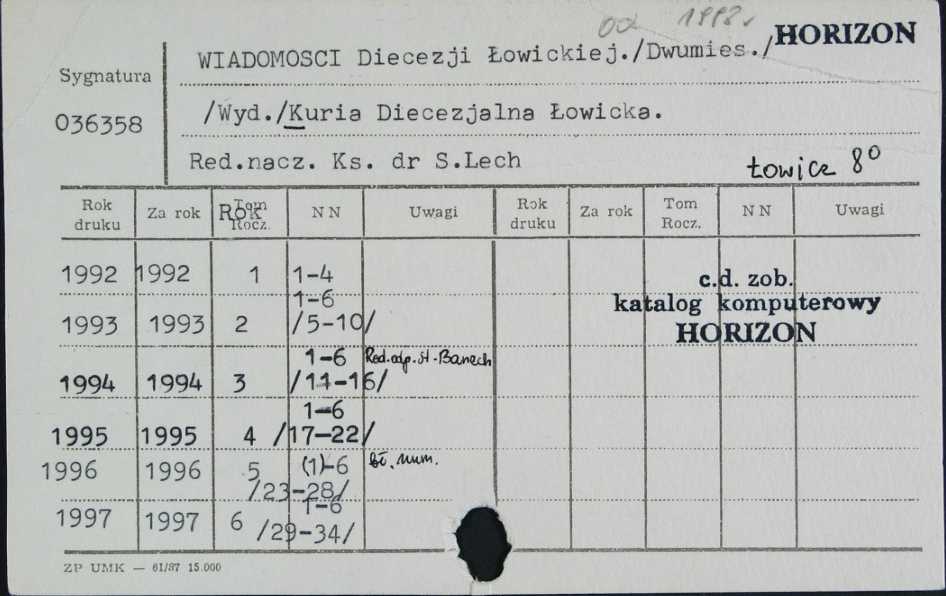 od 1998r
HORIZON
WIADOMOSCI Diecezji Łowickiej./Dwumies./
Sygnatura
036358
/Wyd./Kuria Diecezjalna Łowicka.
Red.nacz. Ks. dr S.Lech
Łowicz 8º
Rok druku Za rok Rok Tom Rocz. NN Uwagi Rok druku Za rok Tom Rocz. NN Uwagi
1992 1992 1 1-4
1-6
1993 1993 2 /5-10/
1-6 Red.odp. St. Banach
1994 1994 3 /11-16/
1-6
1995 1995 4 /17-22/
1996 1996 5 (1)-6 bł. num.
/23-28/
1-6
1997 1997 6 /29-34/
c.d. zob.
katalog komputerowy
HORIZON
ZP UMK — 61/87 15.000